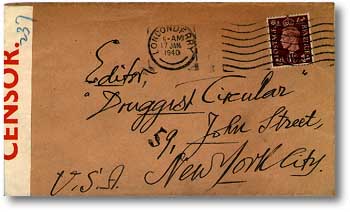 CENSOR.
237
LONDONDERRY
6-AM
17 JAN
1940
Editor,
"Druggist Circular"
59, John Street,
New York City.
U.S.A.